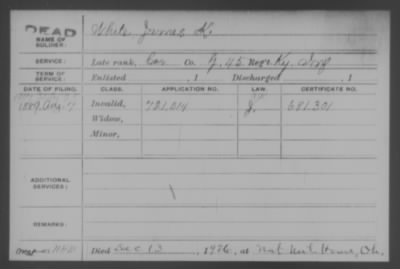 DEAD
NAME OF SOLDIER: White James K.
SERVICE: Late rank, Cor Co. G, 45 Reg't Ky. Inf
TERM OF SERVICE: Enlisted , 1 Discharged , 1
DATE OF FILING. CLASS. APPLICATION NO. LAW. CERTIFICATE NO.
1889, Aug. 7 Invalid, 721,014 J. 681,301
Widow,
Minor,
ADDITIONAL SERVICES:
REMARKS:
Died Dec 13, 1926, at Nat. Mil. Home, Oh.